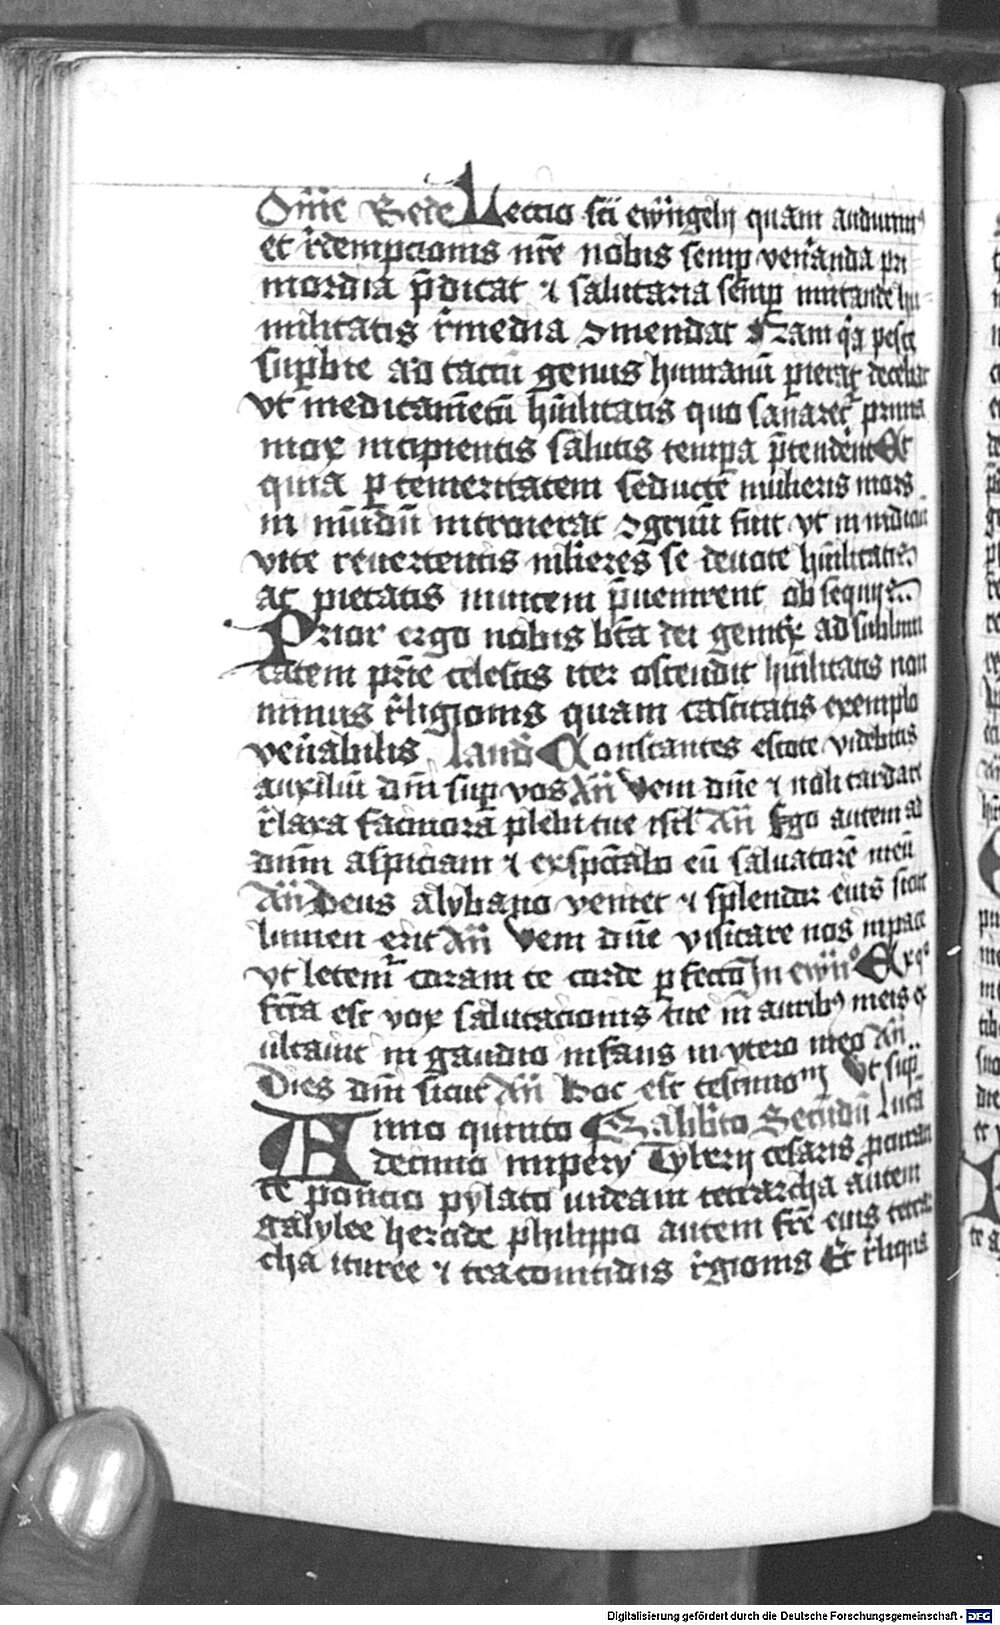 Om̅e Bede Leccio sc̅i ew̅ngelij quam audiuim⁹
et rͤdempcionis nr̅e nobis semp̲ ven̅anda pri
mordia p̅dicat ⁊ salutaria semp̲ imitande hu-
militatis rͤmedia ꝯmendat Nam qͣ peste
sup̲bie ad tactu̅ genus humanu̅ p̲ierat decebat
vt medicame̅tu̅ hu̅ilitatis quo sanaret² prima
mox incipientis salutis tempa p̅tende̅nt Et
quia p̲ temeritatem seducte mulieris mors
in mu̅du̅ introierat ꝯgruu̅ fuit vt in indiciu̅
vite reuertentis mlieres se deuote hu̅ilitatis
ac pietatis inuicem p̅uenirent obsequijs
Prior ergo nobis bt̅a dei genitͥx ad sublimi
tatem pr̅ie celestis iter ostendit hu̅ilitatis non
minus rͤligionis quam castitatis exemplo
ven̅abilis Laud Constantes estote videbitis
auxiliu̅ dn̅i sup̲ vos An̅ Veni dn̅e ⁊ noli tardare
rͤlaxa facinora plebi tue isrl̅ An̅ Ego autem ad
dn̅m aspiciam ⁊ exspc̅abo eu̅ saluatore̅ meu̅
An̅ Deus alybano veniet ⁊ splendor eius sicut
lumen erit An̅ Veni dn̅e visitare nos in pace
vt letem² coram te corde p̲fecto In ew̅n° Ex qͦ
fc̅ta est vox salutacionis tue in auribꝫ meis ex
ultauit in gaudio infans in vtero meo An̅
Dies dn̅i sicut An̅ Hoc est testimoᵐ Vt sup̲
Anno quinto Sabb̅to Secu̅du̅ Luca
decimo impery Tyberij cesaris ꝓcuran
te poncio pylato iudeam tetrarcha autem
galylee herode philippo autem fr̅e eius tetrar
cha ituree ⁊ traconitidis rͤgionis Et rͤliqua
Digitalisierung gefördert durch die Deutsche Forschungsgemeinschaft - DFG